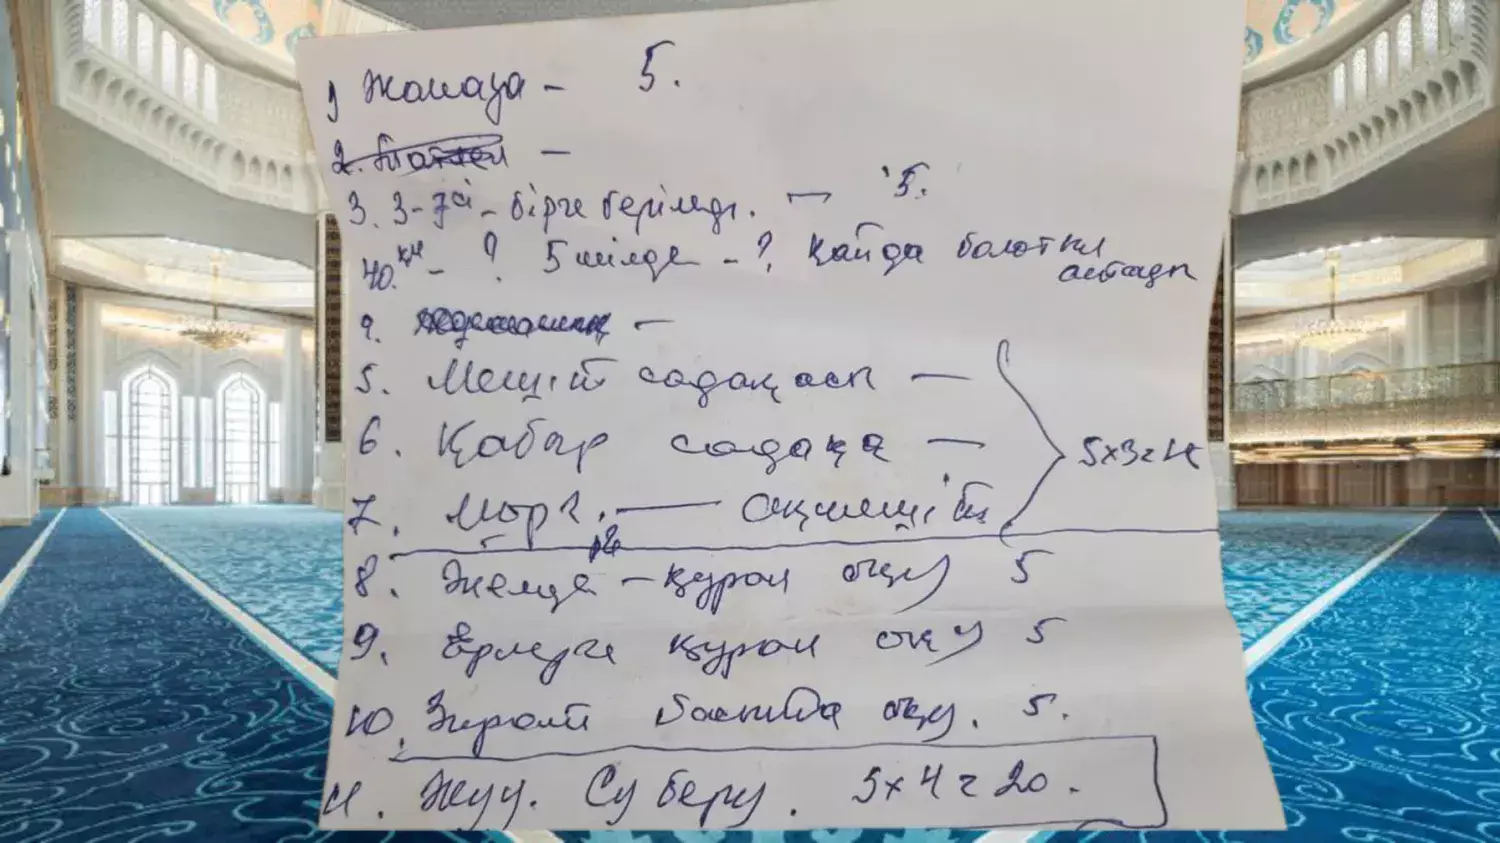 1 Жаназа - 5.
2.
3. 3-7сі - бірге беріледі. — 5.
40.кн - ? 5 мінде - ? қайда болатын
астады
4. —
5. Мешіт садақасы —
6. Қабыр садақа —
7. Мәрг. — Ақмешіт
5x3=15
8. Жеңгеге - құран оқу 5
9. Ерлерге құран оқу 5
10. Зират басында оқу. 5.
11. Жуу. Су беру. 5x4=20.